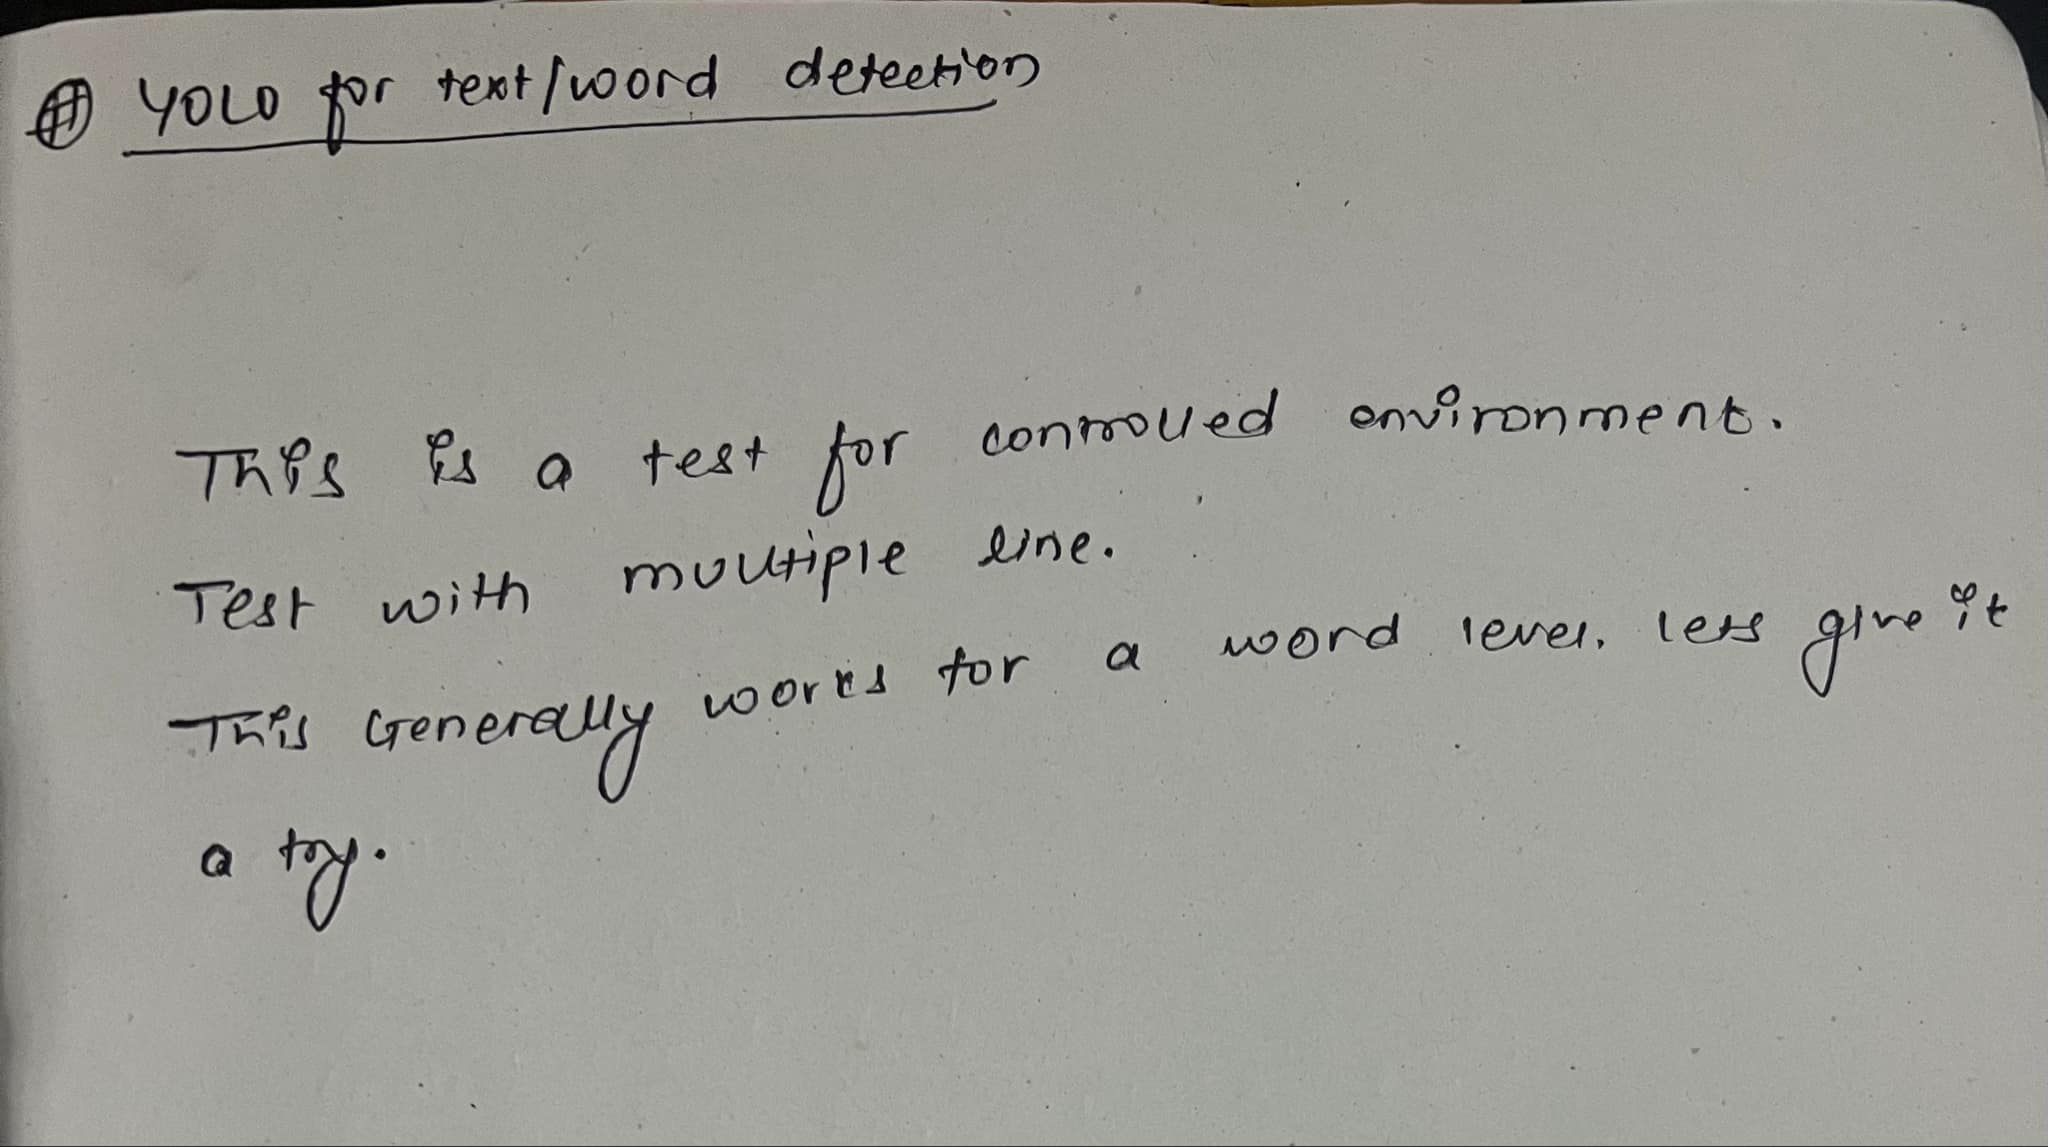 # YOLO for text/word detection
This is a test for controlled environment.
Test with multiple line.
This Generally works for a word level. lets give it
a try.